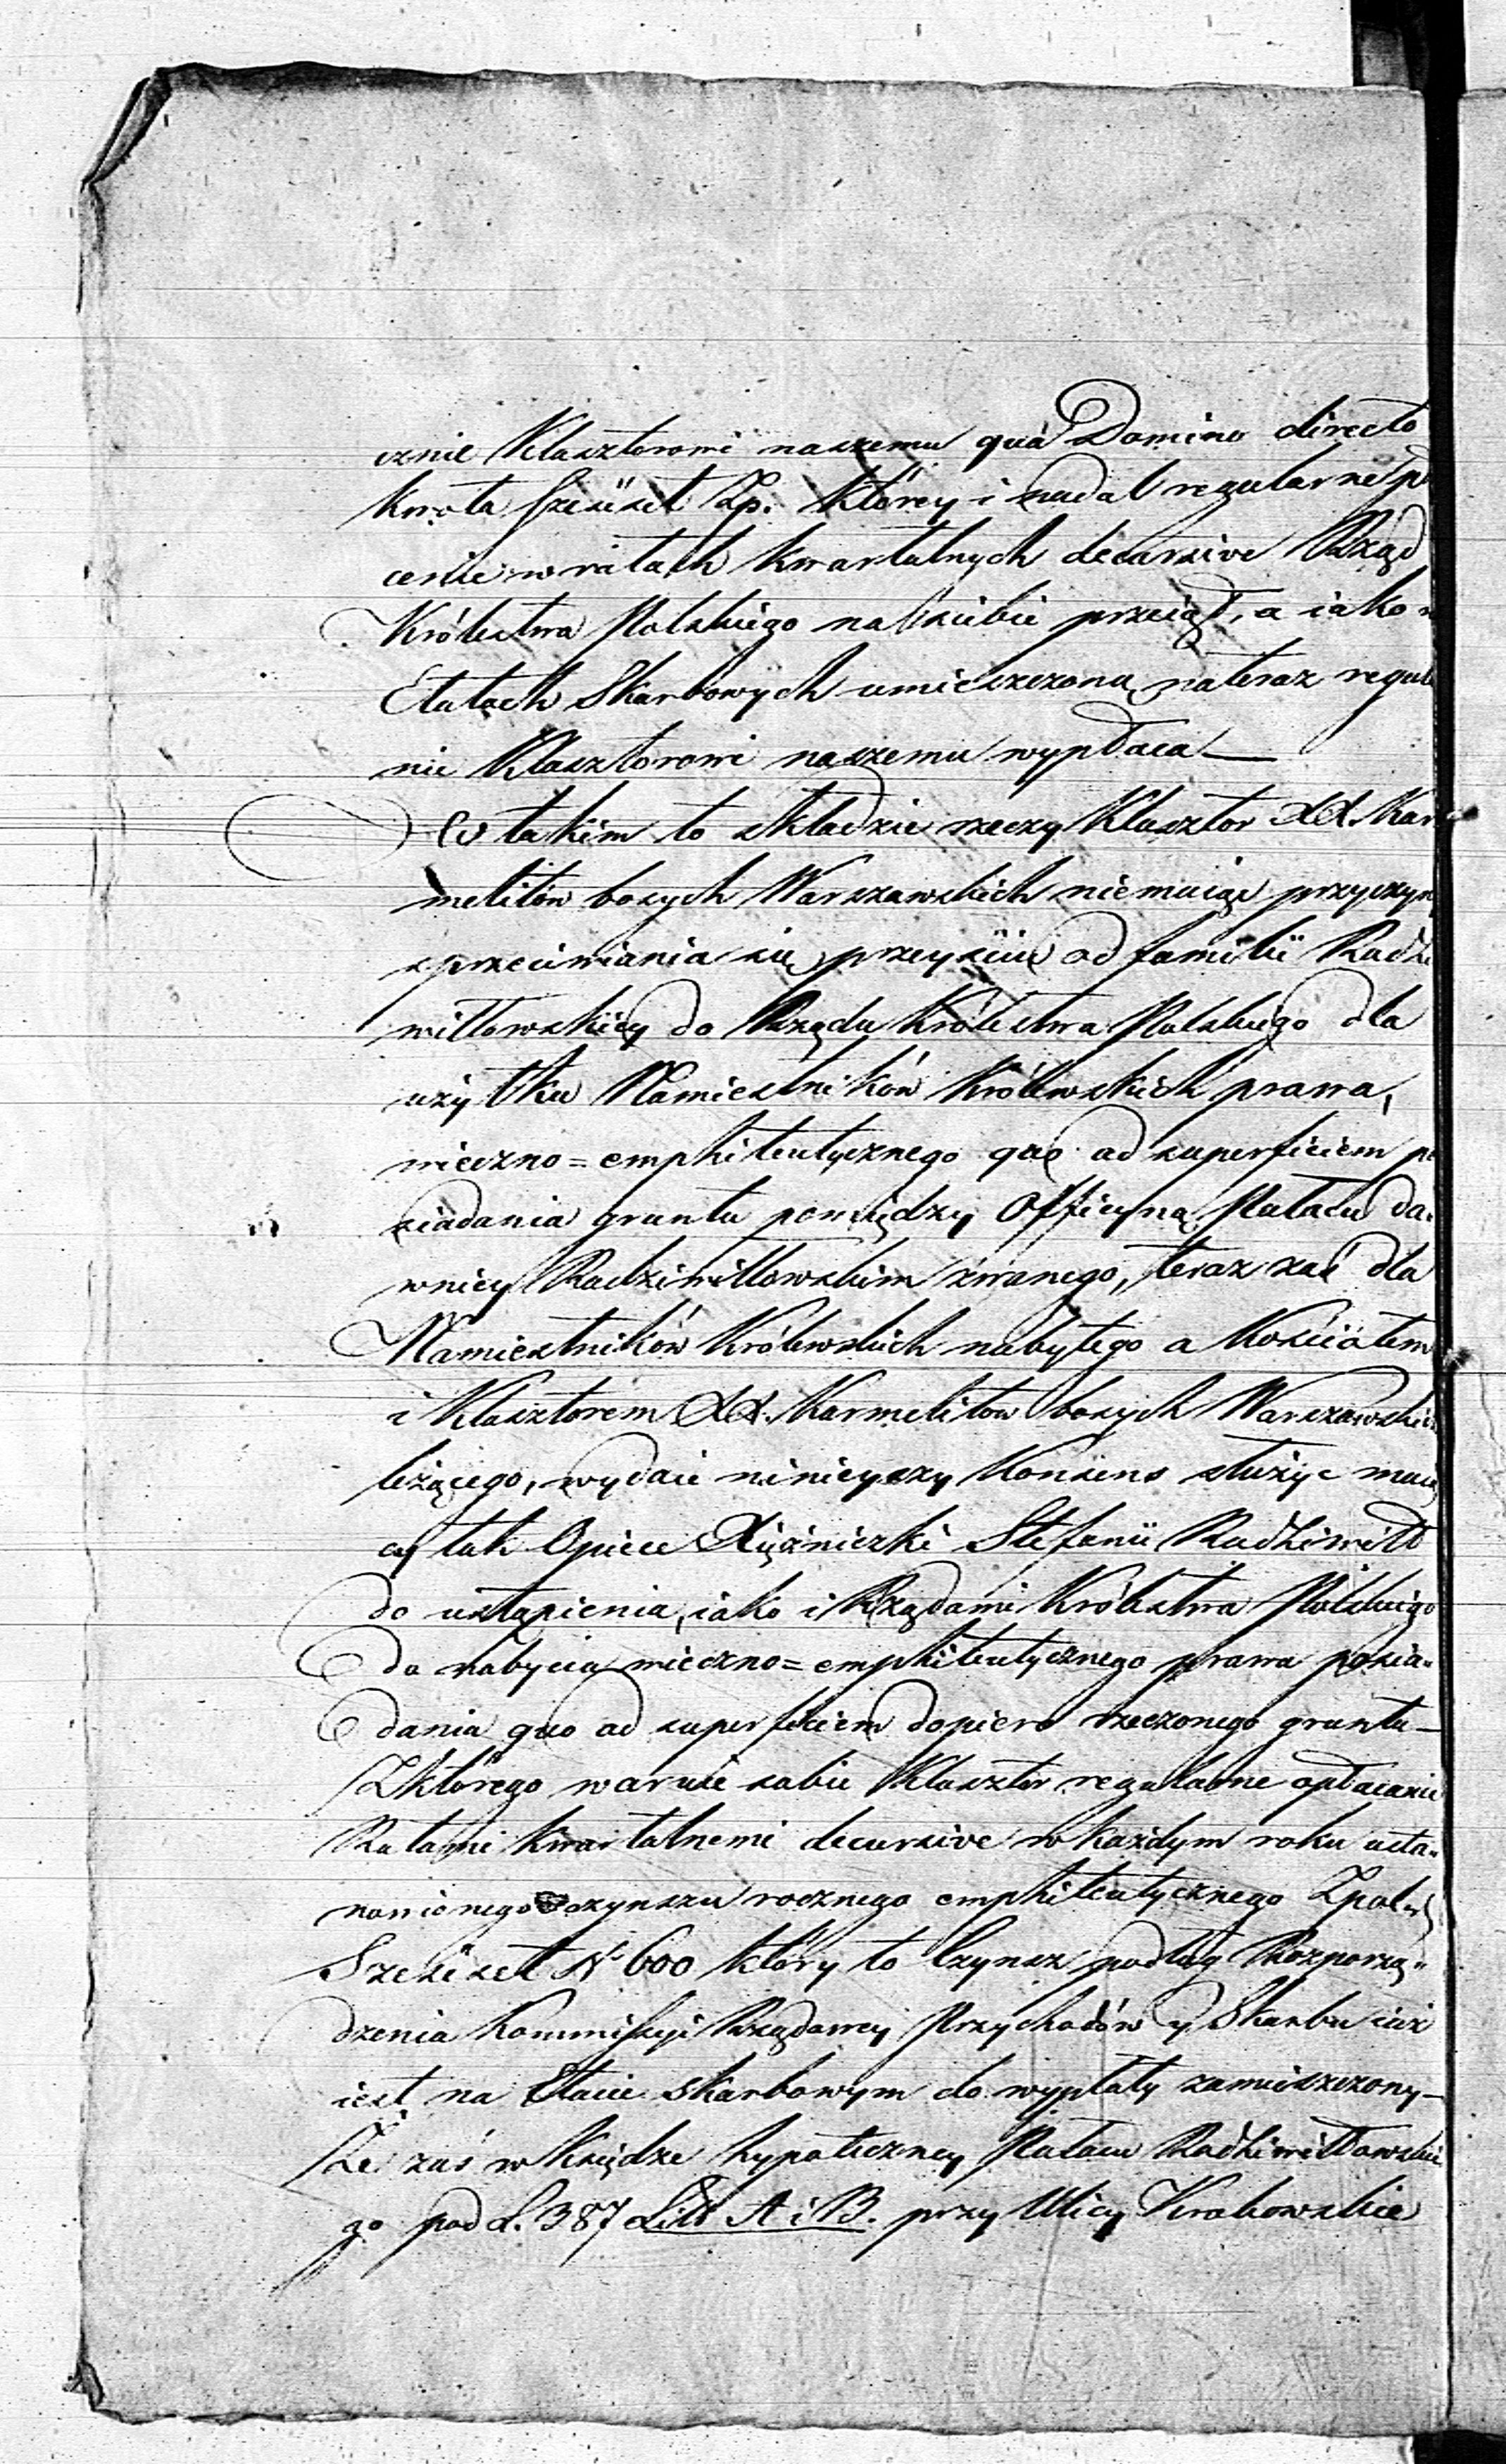 cznie Klasztorowi naszemu quá Domino directo
kwota sześćset Zp. którey i nadal regularne p
cenie w ratach kwartalnych decursive Rząd
Królestwa Polskiego na siebie przeiął, a iako w
Etatach Skarbowych umieszczoną nateraz regul
nie Klasztorowi naszemu wypłaca —
W takim to składzie rzeczy Klasztor XX. Kar
melitów bosych Warszawskich nie maiąc przyczyn
sprzeciwiania się przeyściu od familii Radzi
wiłłowskiey do Rządu Królestwa Polskiego dla
użytku Namiestników Królewskich prawa,
wieczno=emphiteutycznego quo ad superficiem po
siadania gruntu pomiędzy Officyną Pałacu da„
wniey Radziwiłłowskim zwanego, teraz zaś dla
Namiestników Królewskich nabytego a Kościołem
i Klasztorem XX. Karmelitów bosych Warszawskich
leżącego, wydaie ninieyszy Konsens służyć maią
cy tak Opiece Xiężniczki Stefanii Radziwiłł
do ustąpienia, iako i Rządowi Królestwa Polskiego
do nabycia wieczno=emphiteutycznego prawa posia„
dania quo ad superficiem dopiero rzeczonego gruntu —
Z którego waruie sobie Klasztor regularne opłacanie
Ratami kwartalnemi decursive w każdym roku usta„
nowionego czynszu rocznego emphiteutycznego Zpol.
Sześćset N. 600 który to Czynsz podług Rozporzą„
dzenia Kommissyi Rządowey Przychodów y Skarbu iuż
iest na Etacie skarbowym do wypłaty zamieszczony —
Że zaś w księdze hypoteczney Pałacu Radziwiłłowskie
go pod L. 387 Litt A i B. przy Ulicy Krakowskie